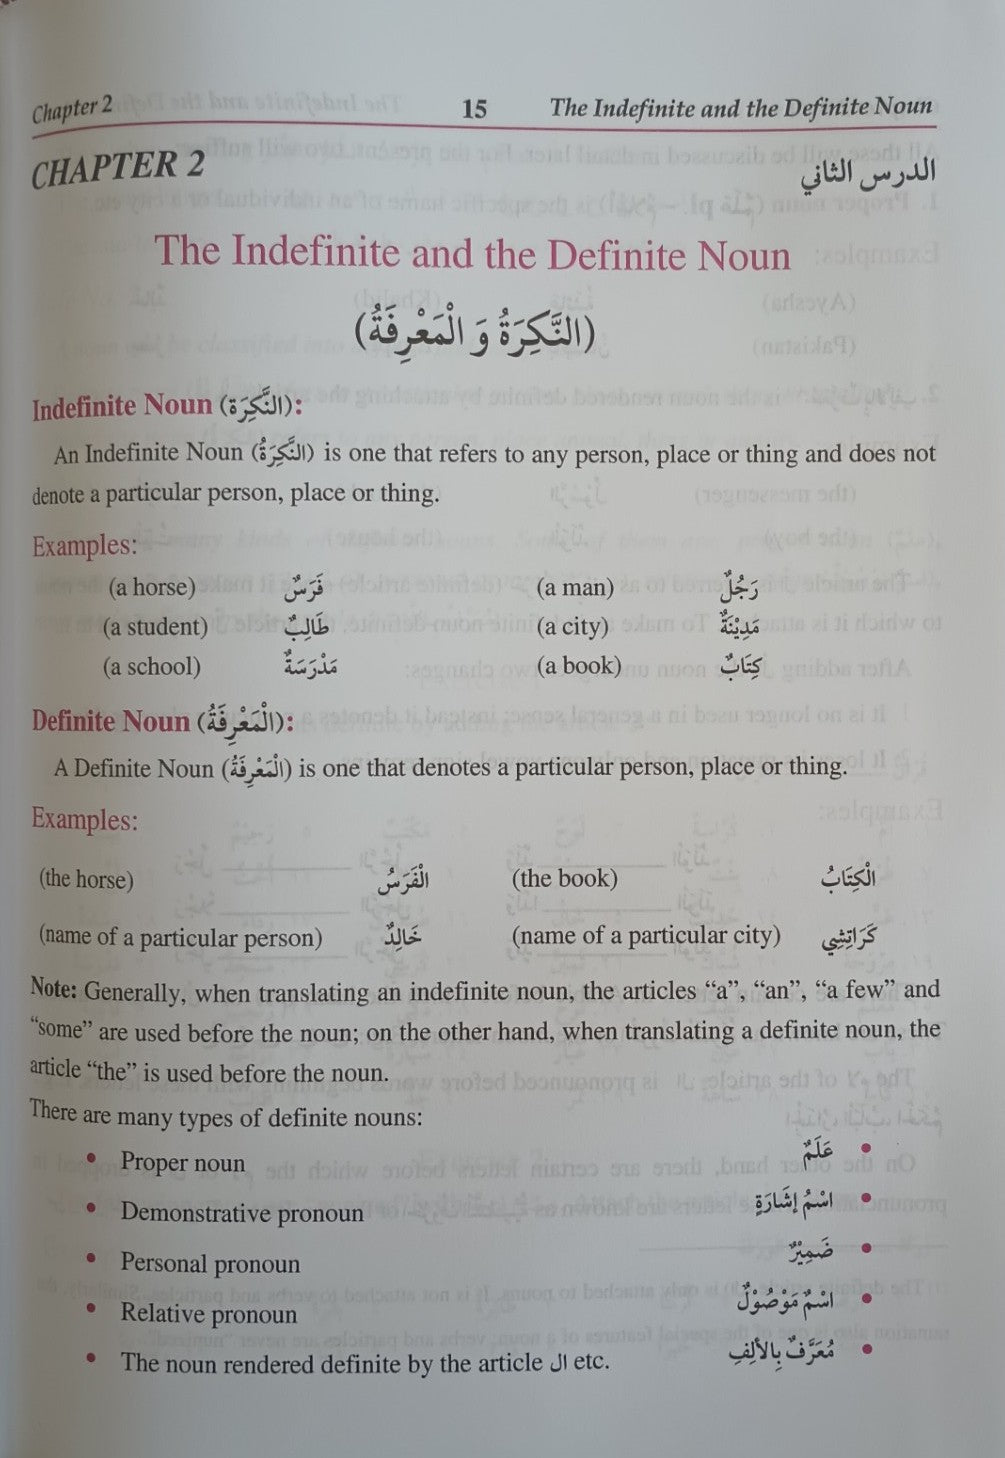 Chapter 2 15 The Indefinite and the Definite Noun
CHAPTER 2 الدرس الثاني
The Indefinite and the Definite Noun
(النَّكِرَةُ وَ الْمَعْرِفَةُ)
Indefinite Noun (النَّكِرَة):
An Indefinite Noun (النَّكِرَةُ) is one that refers to any person, place or thing and does not
denote a particular person, place or thing.
Examples:
(a horse) فَرَسٌ (a man) رَجُلٌ
(a student) طَالِبٌ (a city) مَدِيْنَةٌ
(a school) مَدْرَسَةٌ (a book) كِتَابٌ
Definite Noun (الْمَعْرِفَةُ):
A Definite Noun (الْمَعْرِفَةُ) is one that denotes a particular person, place or thing.
Examples:
(the horse) الْفَرَسُ (the book) الْكِتَابُ
(name of a particular person) خَالِدٌ (name of a particular city) كَرَاتِشِي
Note: Generally, when translating an indefinite noun, the articles “a”, “an”, “a few” and
“some” are used before the noun; on the other hand, when translating a definite noun, the
article “the” is used before the noun.
There are many types of definite nouns:
• Proper noun عَلَمٌ •
• Demonstrative pronoun اسْمُ إِشَارَةٍ •
• Personal pronoun ضَمِيْرٌ •
• Relative pronoun اسْمٌ مَوْصُوْلٌ •
• The noun rendered definite by the article ال etc. مُعَرَّفٌ بِالألِفِ •